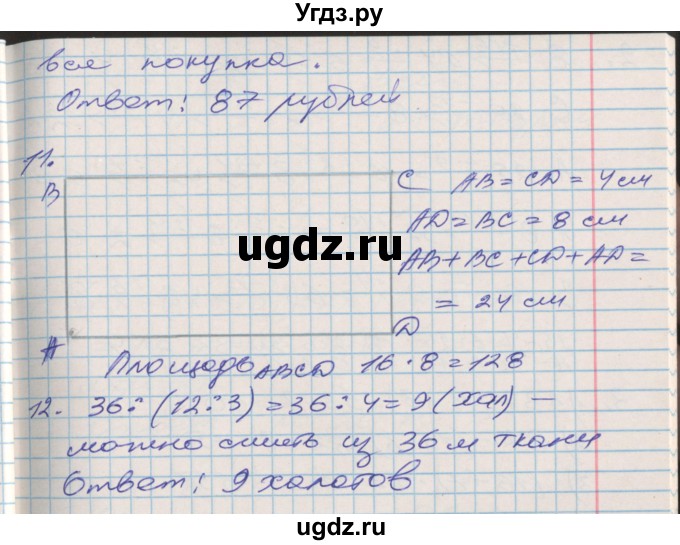 Угдз.ру
вся покупка.
Ответ: 87 рублей
11.
B
C AB = CD = 4 см
AD = BC = 8 см
AB + BC + CD + AD =
= 24 см
ugdz.ru
A
D
Площадь ABCD 16 · 8 = 128
12. 36 : (12 : 3) = 36 : 4 = 9 (хал) —
можно сшить из 36 м ткани
Ответ: 9 халатов
ugdz.ru